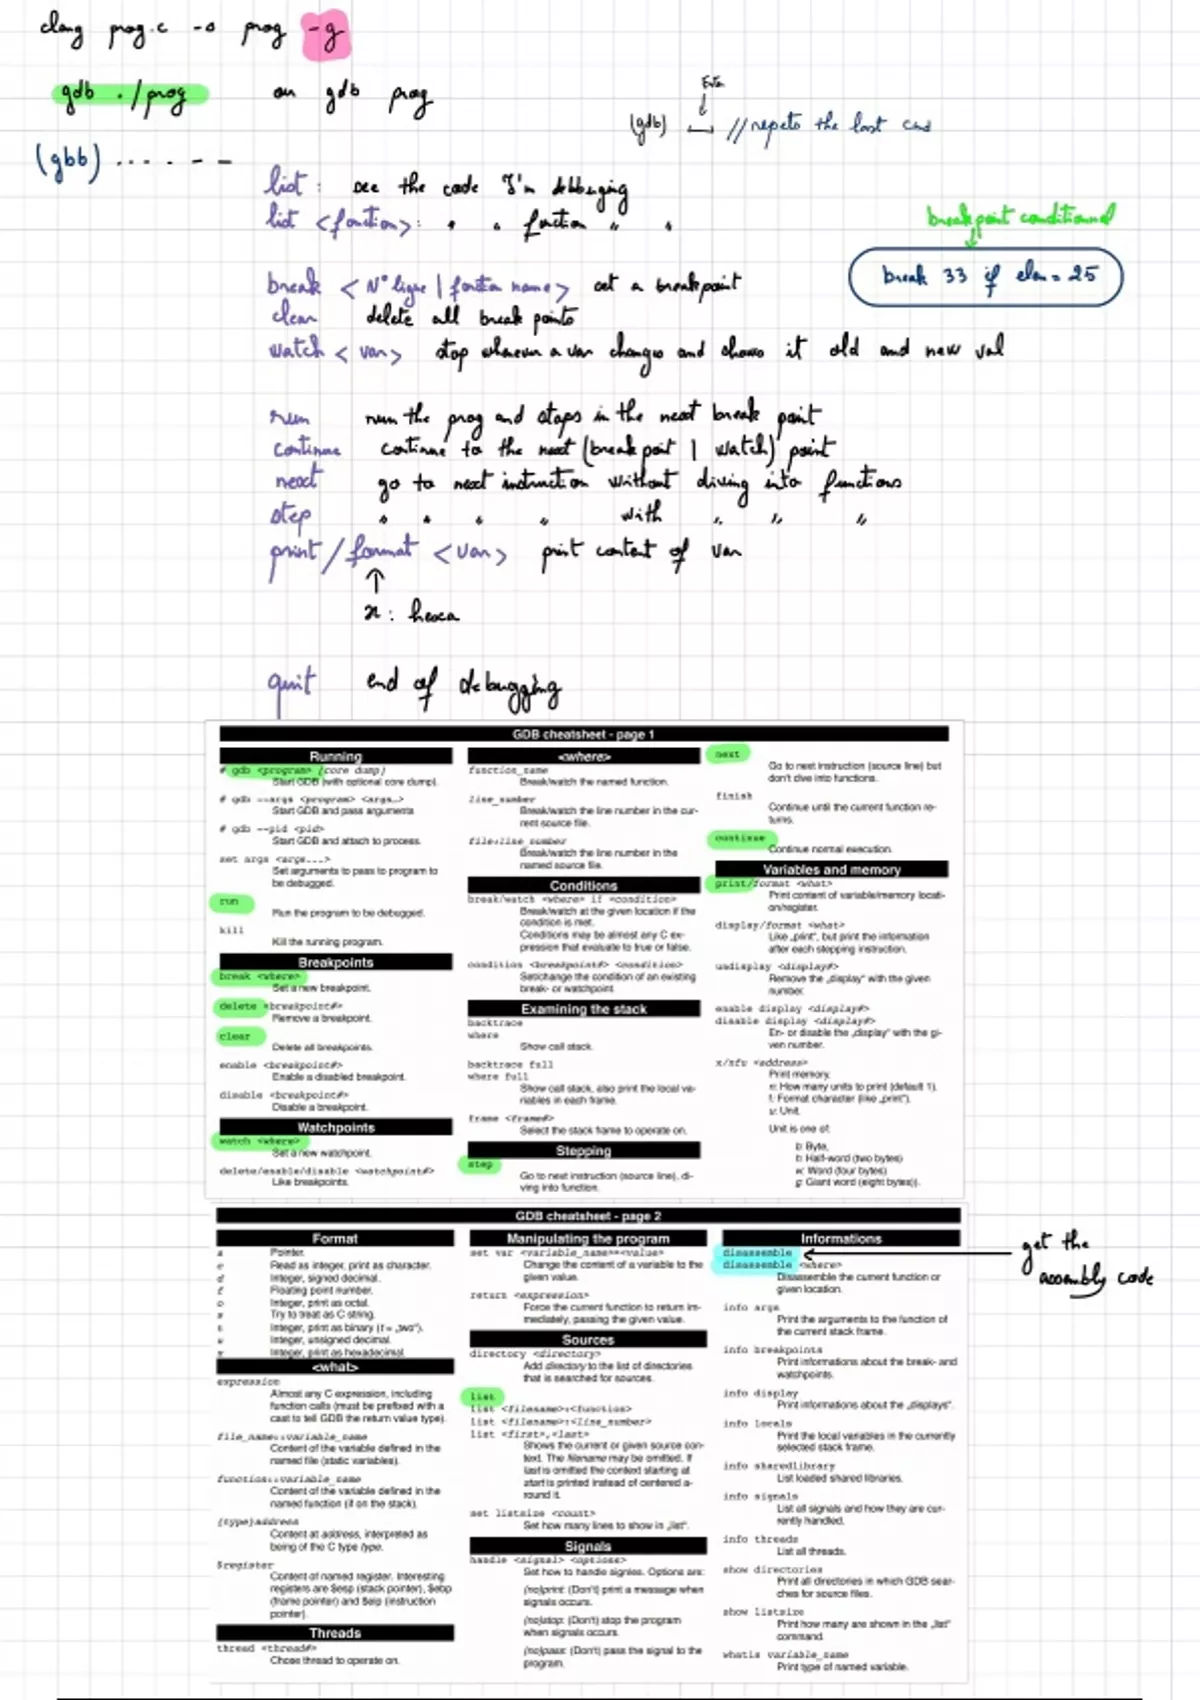 clang prog.c -o prog -g
gdb ./prog ou gdb prog
Enter
(gdb) // repets the last cmd
(gbb) ...... - -
list : see the code I'm debbuging
list <fonction>: " " fonction " "
breakpoint conditionnel
break 33 if elem = 25
break <N° ligne | fonction name> set a breakpoint
clear delete all break points
watch <var> stop whenever a var changes and shows it old and new val
run run the prog and stops in the next break point
continue continue to the next (break point | watch) point
next go to next instruction without diving into functions
step " " " " with " " "
print / format <var> print content of var
↑
x : hexa
quit end of debugging
GDB cheatsheet - page 1
Running
# gdb <program> [core dump]
Start GDB (with optional core dump).
# gdb --args <program> <args…>
Start GDB and pass arguments
# gdb --pid <pid>
Start GDB and attach to process.
set args <args...>
Set arguments to pass to program to
be debugged.
run
Run the program to be debugged.
kill
Kill the running program.
Breakpoints
break <where>
Set a new breakpoint.
delete <breakpoint#>
Remove a breakpoint.
clear
Delete all breakpoints.
enable <breakpoint#>
Enable a disabled breakpoint.
disable <breakpoint#>
Disable a breakpoint.
Watchpoints
watch <where>
Set a new watchpoint.
delete/enable/disable <watchpoint#>
Like breakpoints.
<where>
function_name
Break/watch the named function.
line_number
Break/watch the line number in the cur-
rent source file.
file:line_number
Break/watch the line number in the
named source file.
Conditions
break/watch <where> if <condition>
Break/watch at the given location if the
condition is met.
Conditions may be almost any C ex-
pression that evaluate to true or false.
condition <breakpoint#> <condition>
Set/change the condition of an existing
break- or watchpoint.
Examining the stack
backtrace
where
Show call stack.
backtrace full
where full
Show call stack, also print the local va-
riables in each frame.
frame <frame#>
Select the stack frame to operate on.
Stepping
step
Go to next instruction (source line), di-
ving into function.
next
Go to next instruction (source line) but
don't dive into functions.
finish
Continue until the current function re-
turns.
continue
Continue normal execution.
Variables and memory
print/format <what>
Print content of variable/memory locati-
on/register.
display/format <what>
Like „print“, but print the information
after each stepping instruction.
undisplay <display#>
Remove the „display“ with the given
number.
enable display <display#>
disable display <display#>
En- or disable the „display“ with the gi-
ven number.
x/nfu <address>
Print memory.
n: How many units to print (default 1).
f: Format character (like „print“).
u: Unit.
Unit is one of:
b: Byte,
h: Half-word (two bytes)
w: Word (four bytes)
g: Giant word (eight bytes)).
GDB cheatsheet - page 2
Format
a Pointer.
c Read as integer, print as character.
d Integer, signed decimal.
f Floating point number.
o Integer, print as octal.
s Try to treat as C string.
t Integer, print as binary (t = „two“).
u Integer, unsigned decimal.
x Integer, print as hexadecimal.
<what>
expression
Almost any C expression, including
function calls (must be prefixed with a
cast to tell GDB the return value type).
file_name::variable_name
Content of the variable defined in the
named file (static variables).
function::variable_name
Content of the variable defined in the
named function (if on the stack).
{type}address
Content at address, interpreted as
being of the C type type.
$register
Content of named register. Interesting
registers are $esp (stack pointer), $ebp
(frame pointer) and $eip (instruction
pointer).
Threads
thread <thread#>
Chose thread to operate on.
Manipulating the program
set var <variable_name>=<value>
Change the content of a variable to the
given value.
return <expression>
Force the current function to return im-
mediately, passing the given value.
Sources
directory <directory>
Add directory to the list of directories
that is searched for sources.
list
list <filename>:<function>
list <filename>:<line_number>
list <first>,<last>
Shows the current or given source con-
text. The filename may be omitted. If
last is omitted the context starting at
start is printed instead of centered a-
round it.
set listsize <count>
Set how many lines to show in „list“.
Signals
handle <signal> <options>
Set how to handle signles. Options are:
(no)print: (Don't) print a message when
signals occurs.
(no)stop: (Don't) stop the program
when signals occurs.
(no)pass: (Don't) pass the signal to the
program.
Informations
disassemble
disassemble <where>
Disassemble the current function or
given location.
info args
Print the arguments to the function of
the current stack frame.
info breakpoints
Print informations about the break- and
watchpoints.
info display
Print informations about the „displays“.
info locals
Print the local variables in the currently
selected stack frame.
info sharedlibrary
List loaded shared libraries.
info signals
List all signals and how they are cur-
rently handled.
info threads
List all threads.
show directories
Print all directories in which GDB sear-
ches for source files.
show listsize
Print how many are shown in the „list“
command.
whatis variable_name
Print type of named variable.
get the
assembly code